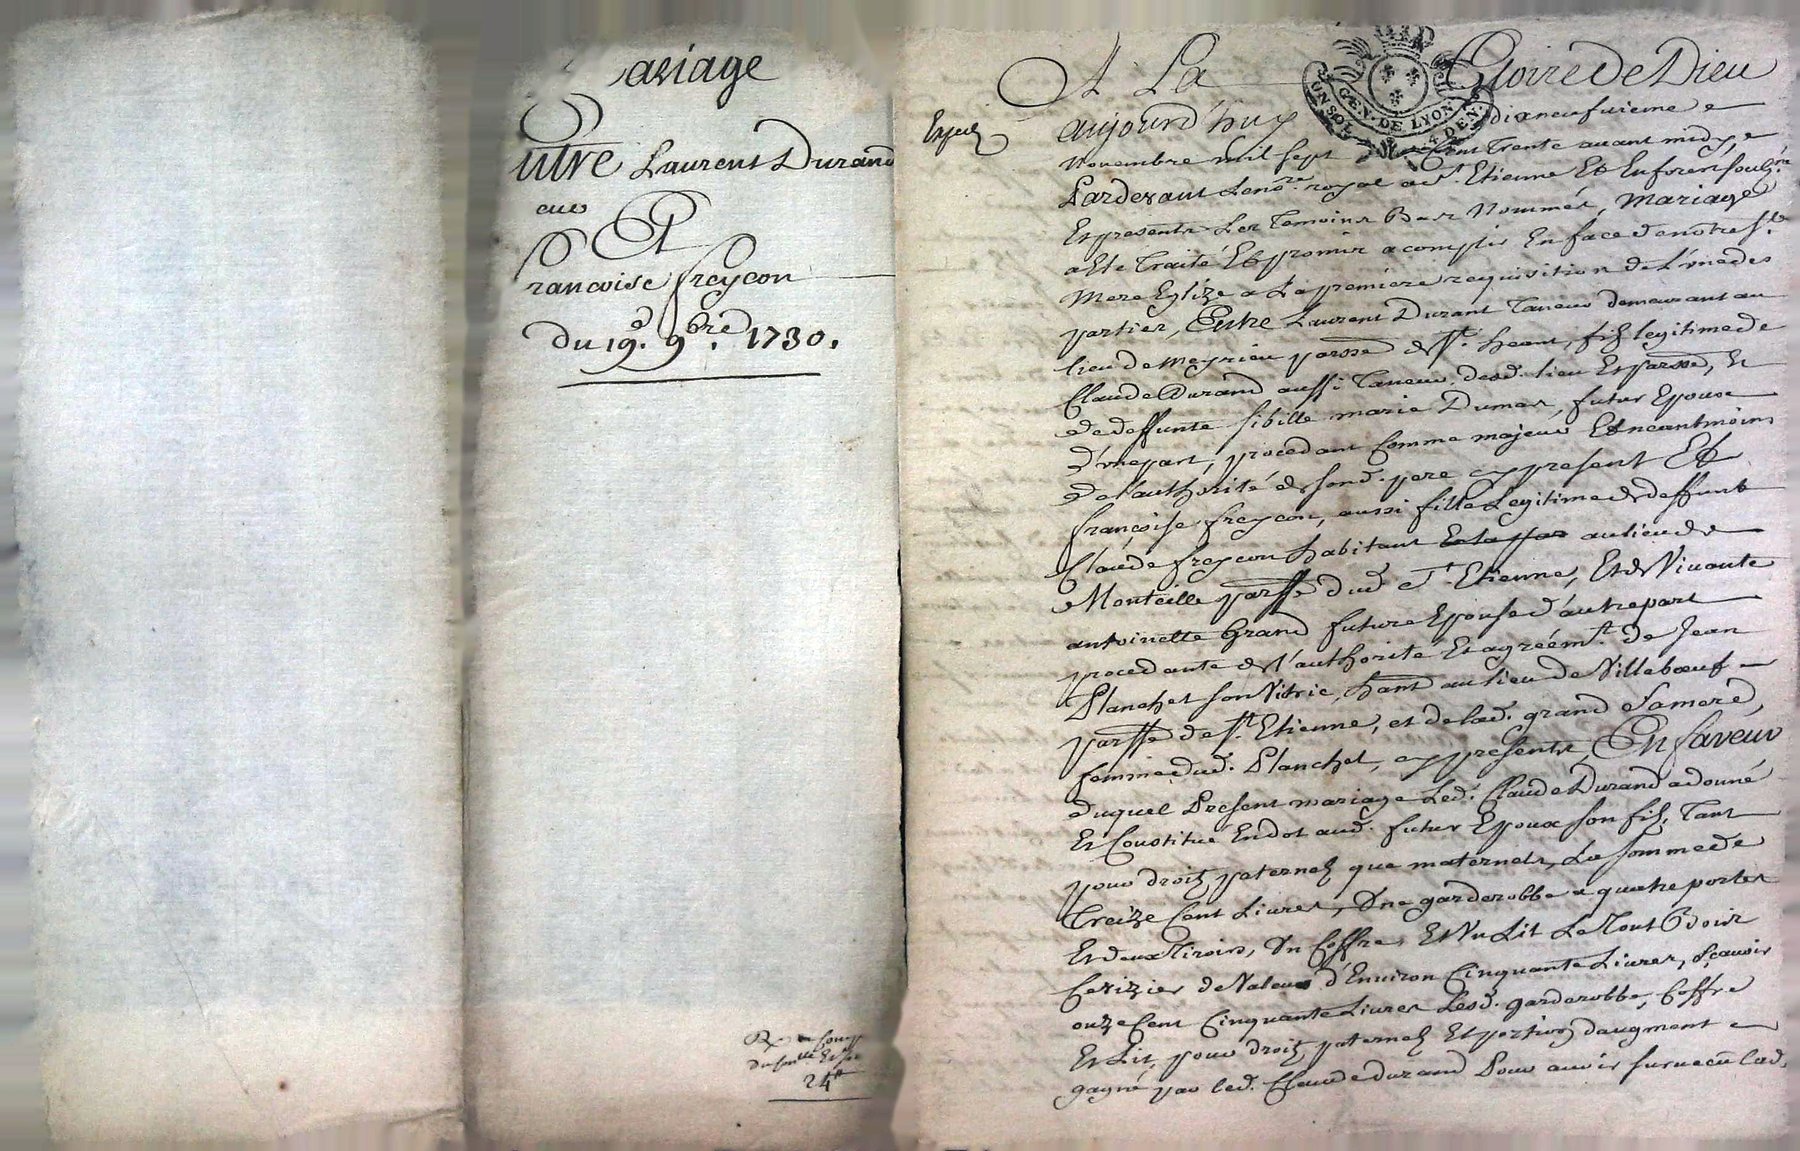 Mariage
Entre Laurent Durand
Et
francoise freycon
du 19.e 9bre. 1730.
24
A La Gloire De Dieu
GEN. DE LYON
UN SOL 4 DEN.
Exped
aujourd'huy dixneufvieme
Novembre mil sept Cent Trente avant midy,
Pardevant Le no.re royal a St. Etienne Et En forest soubz.né
Et presents Les Temoins Bas Nommés, Mariage
a Ete Traité Et promis acomplir En face de notre Ste.
Mere Eglize a La premiere requisition de L'une des
parties, Entre Laurent Durant Taneur demeurant au
lieu de Meyrieu parsse de St. heant, fils legitime de
Claude Durand aussi Taneur dud. lieu Et parsse, Et
de deffunte sibille marie Dumas, futur Epoux
d'une part, procedant Comme majeur Et neantmoins
de l'authorité de sond. pere cy present Et
françoise freycon, aussi fille Legitime de deffunt
Claude freycon habitant au lieu de
Monteille parsse dud. St. Etienne, Et de Vivante
antoinette Grand future Epouse d'autre part
procedante de l'authorité Et agréemt. de Jean
Planchet son Vitric, hant. au lieu de Villebœuf
parsse de St. Etienne, et de lad. grand sa mere,
femme dud. Planchet, cy presents, En faveur
duquel Present mariage Led. Claude Durand a donné
Et Constitué En dot aud. futur Epoux son fils, Tant
pour droits paternels que maternels, La somme de
Treize Cent Livres, Une garderobbe a quatre portes
Et deux Tiroirs, Un Coffre, Et Un Lit Le Tout Bois
Cerizier de Valeur d'Environ Cinquante Livres, sçavoir
onze Cent Cinquante Livres Lesd. garderobbe, Coffre
Et Lit, pour droits paternels Et portion d'augment
gagné par led. Claude durand Pour avoir survecu lad.